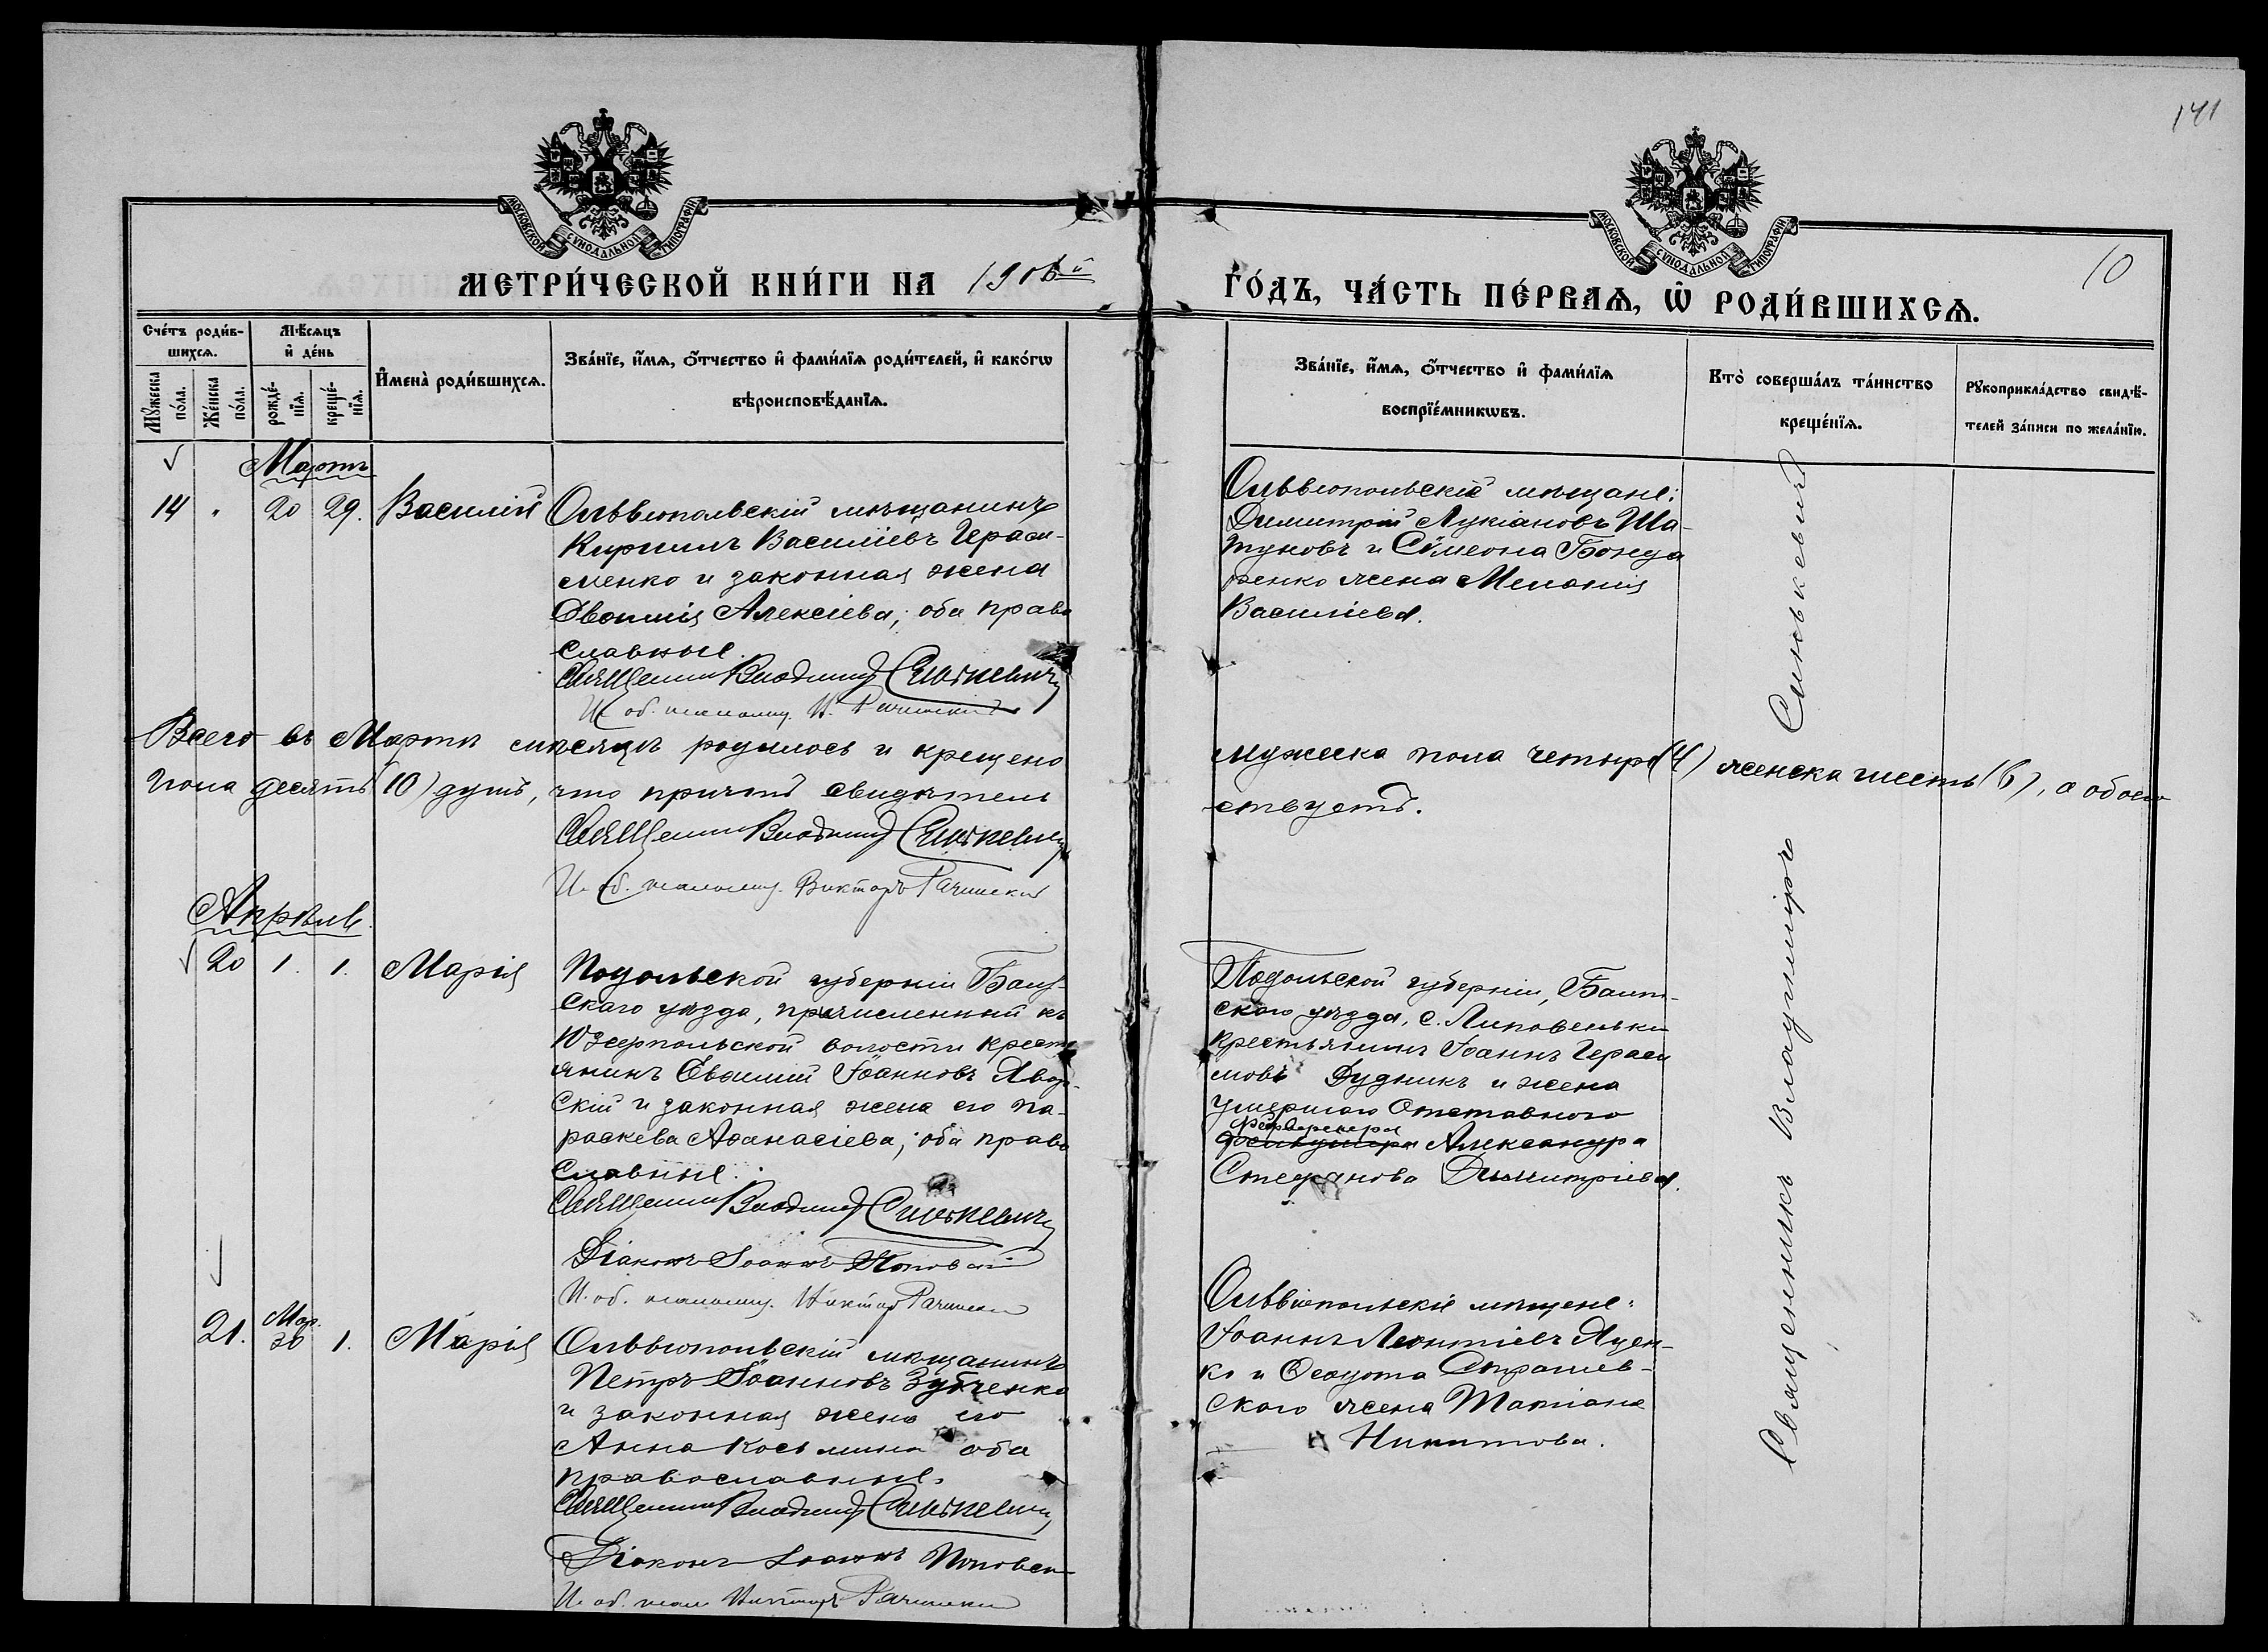 141
10
МОСКОВСКОЙ СѴНОДАЛЬНОЙ ТИПОГРАФІИ
МОСКОВСКОЙ СѴНОДАЛЬНОЙ ТИПОГРАФІИ
МЕТРИ́ЧЕСКОЙ КНИ́ГИ НА 1906й
ГО́ДЪ, ЧА́СТЬ ПЕ́РВАѦ, Ѡ҆ РОДИ́ВШИХСѦ.
Сче́тъ роди́в-
шихсѧ.
Мꙋ́жеска по́ла.
Же́нска по́ла.
Мѣ́сѧцъ
и҆ де́нь
рожде́-
нїѧ.
креще́-
нїѧ.
И҆мена̀ роди́вшихсѧ.
Зва́нїе, и҆́мѧ, ѻ҆́тчество и҆ фами́лїѧ роди́телей, и҆ како́гѡ
вѣроисповѣ́данїѧ.
Зва́нїе, и҆́мѧ, ѻ҆́тчество и҆ фами́лїѧ
воспрїе́мникѡвъ.
Кто̀ соверша́лъ та́инство
креще́нїѧ.
Рꙋкоприкла́дство свидѣ́-
телей за́писи по жела́нїю.
Мартъ
14 " 20 29. Василій
Ольвіопольскій мѣщанинъ
Кириллъ Василіевъ Гераси-
менко и законная жена
Алексіева; оба право
славные.
Священник Владимир Синькевичъ
И. об. псаломщ. В. Рачинскій
Ольвіопольскіе мѣщане:
Димитрій Лукіановъ Ша-
туновъ и Сѵмеона Бонда
ренко жена Меланія
Василіева.
Всего въ Мартѣ мѣсяцѣ родилось и крещено мужеска пола четыре (4) женска шесть (6), а обоего
пола десять (10) душъ, что причтъ свидѣтель
ствуетъ.
Священник Владимир Синькевичъ
И. об. псаломщ. Викторъ Рачинскій
Апрѣль.
20 1. 1. Марія
Подольской губерніи Балт-
скаго уѣзда, причисленный къ
Юзефпольской волости кресть
янинъ Евѳимій Іоанновъ Явор-
скій и законная жена его Па-
раскева Аѳанасіева; оба право
славные.
Священник Владимир Синькевичъ
Діаконъ Іоаннъ
И. об. псаломщ. Виктор Рачинскій
Подольской губерніи, Балт-
скаго уѣзда, с. Липовеньки
крестьянинъ Іоаннъ Гераси
мовъ Дудникъ и жена
умершаго Отставного
Александра
Степанова Димитріева.
21. Мар. 30 1. Марія
Ольвіопольскій мѣщанинъ
Петръ Іоанновъ Зубченко
и законная жена его
Анна Косьмина оба
православные.
Священник Владимир Синькевичъ
Діаконъ Іоаннъ
И. об. псал. Виктор Рачинскій
Ольвіопольскіе мѣщане:
Іоаннъ Леонтіевъ Яцен-
ко и Ѳеодота Страшев-
скаго жена Татіана
Никитова.
Священникъ Владиміръ Синькевичъ